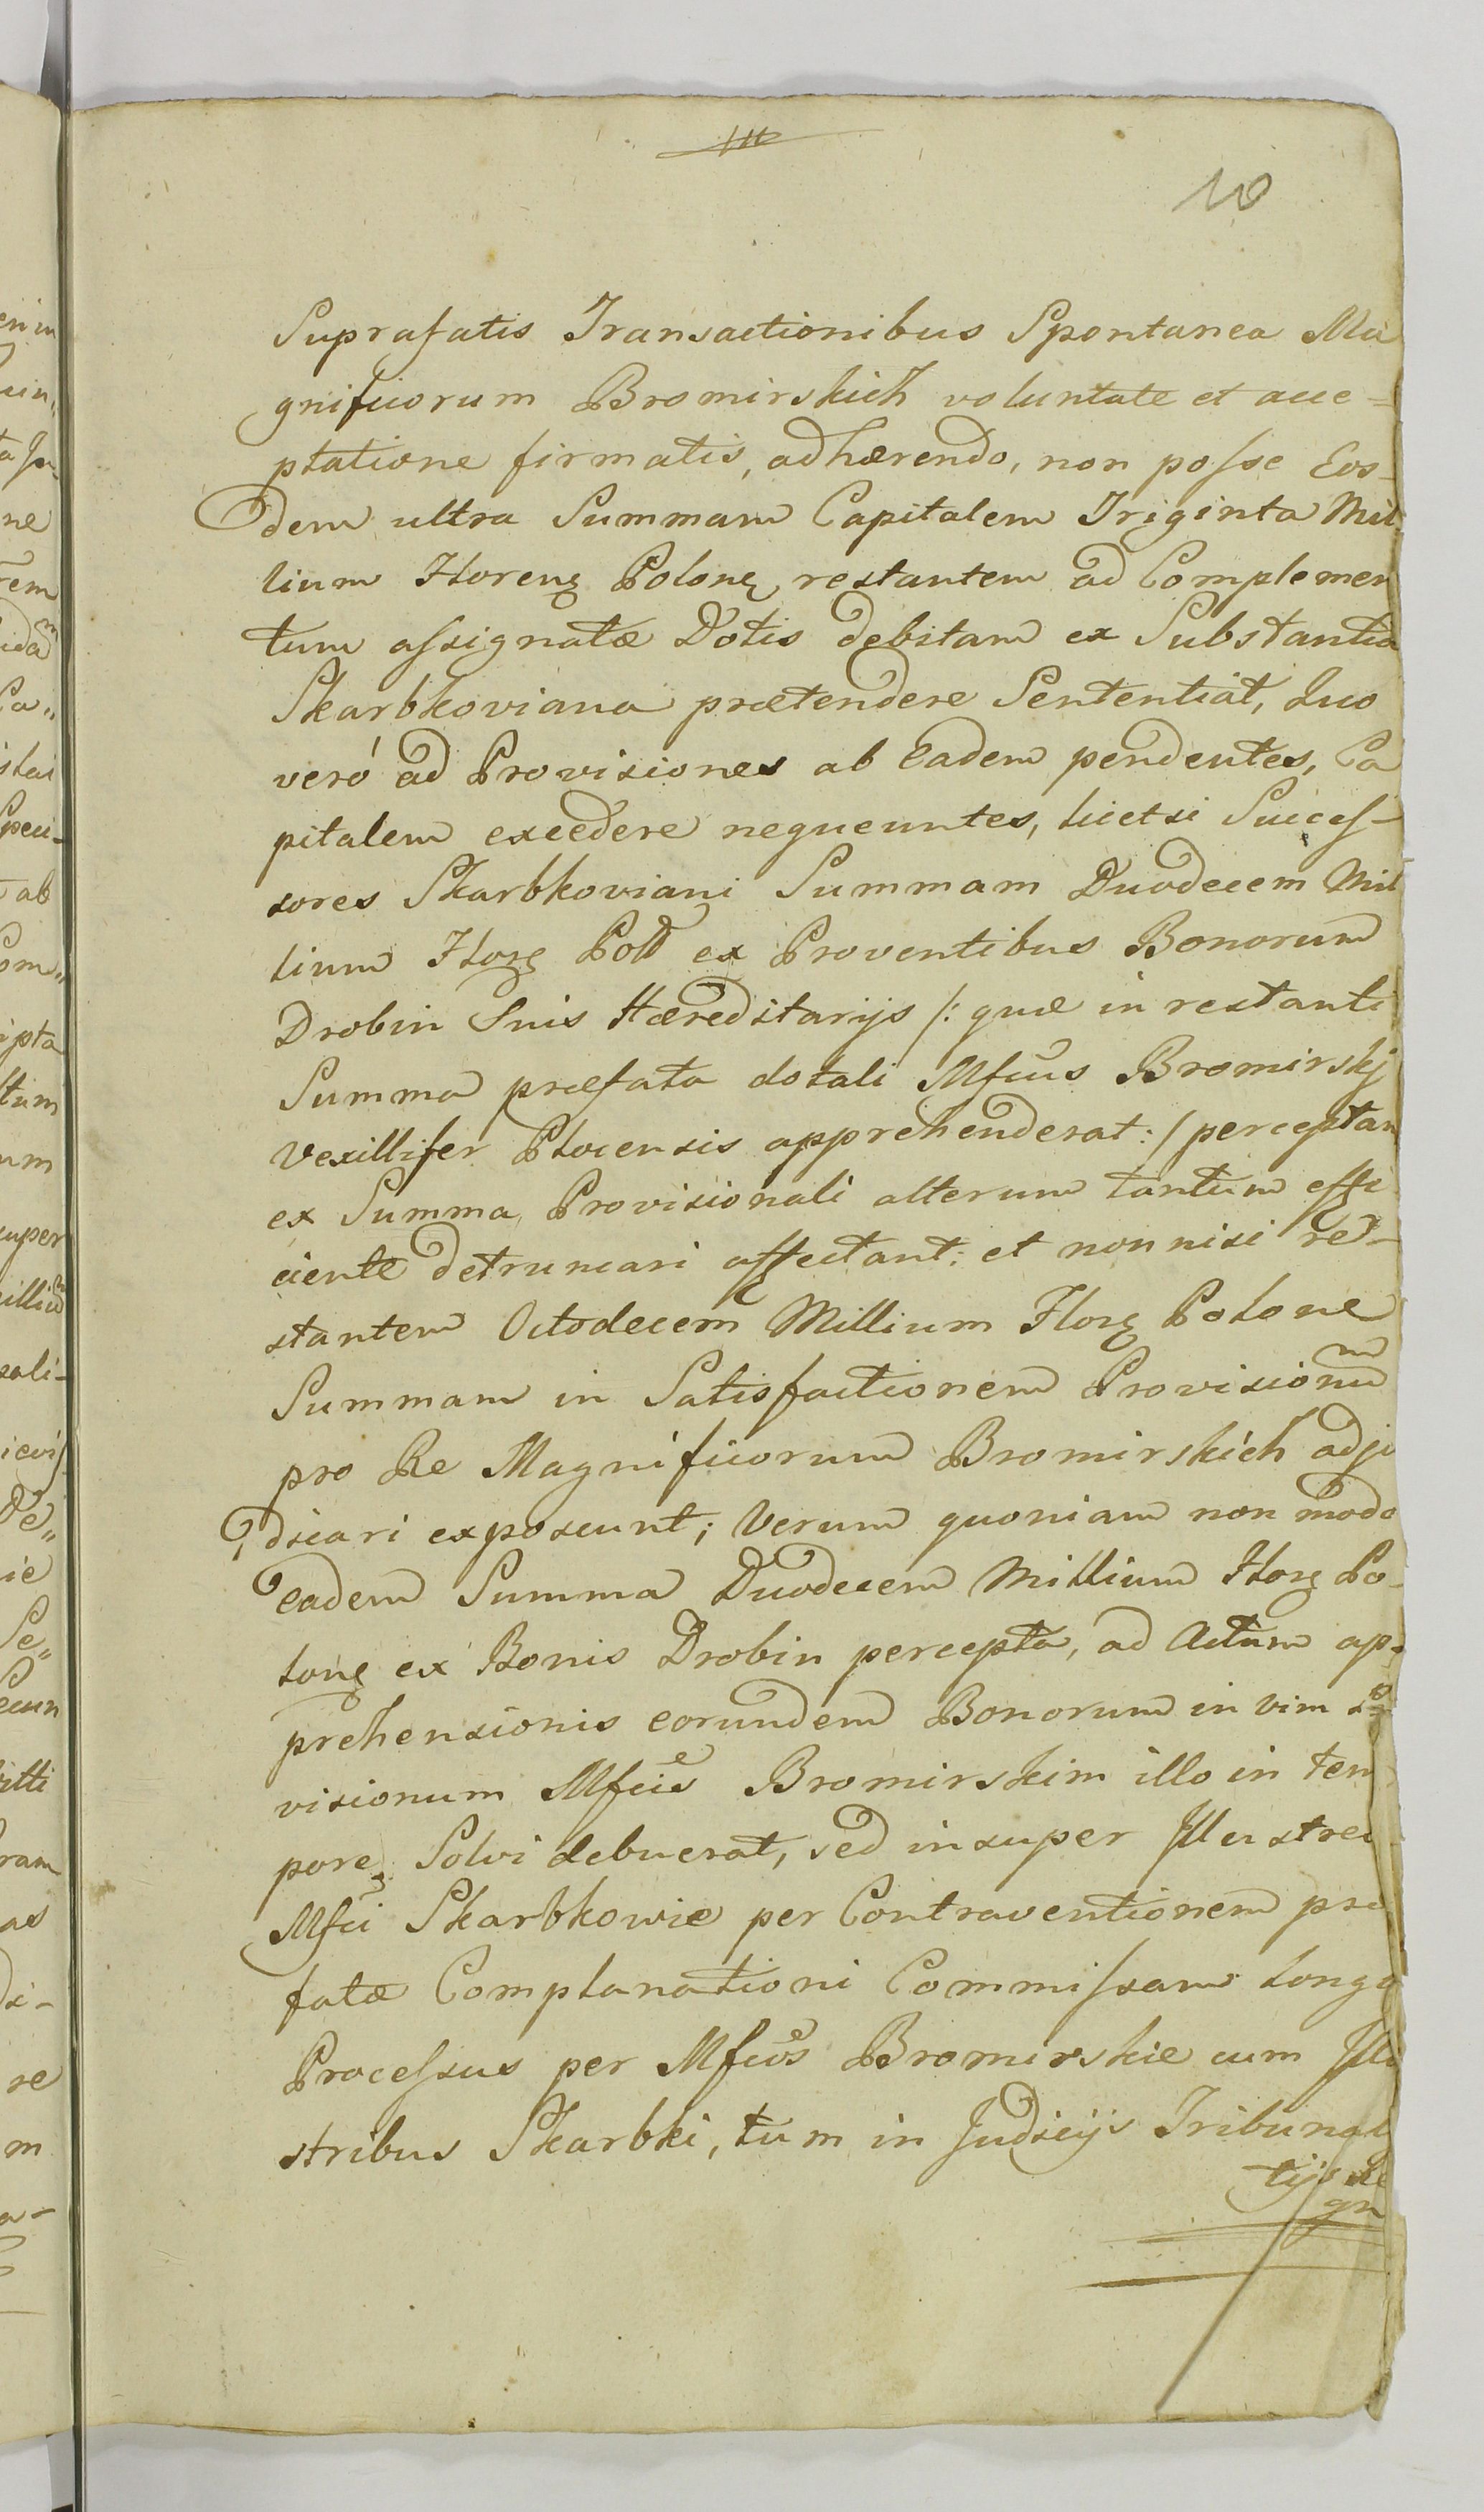 10
Suprafatis Transactionibus Spontanea Ma
gnificorum Bromirskich voluntate et acce-
ptatione firmatis, adhærendo, non posse Eos-
dem ultra Summam Capitalem Triginta Mil
lium Floreng Polong restantem ad Complemen
tum assignatæ Dotis debitam ex Substantia
Skarbkoviana prætendere Sententiat, Quo
veró ad Provisiones ab Eadem pendentes, Ca
pitalem excedere nequeuntes, licet si Succes-
sores Skarbkoviani Summam Duodecem Mil
lium Flog Poll ex Proventibus Bonorum
Drobin Suis Hæreditarijs /: quæ in restanti
Summa præfata dotali Mfcus Bromirskj
Vexillifer Plocensis apprehenderat :/ perceptam
ex Summa Provisionali alterum tantum effi
ciente detruncari affectant: et non nisi re-
stantem Octodecem Millium Flog Polone
Summam in Satisfactionem Provisionum
pro Re Magnificorum Bromirskich adju
dicari exposcunt; Verum quoniam non modo
eadem Summa Duodecem Millium Flog Po-
long ex Bonis Drobin percepta, ad Actum ap-
prehensionis eorundem Bonorum in vim
visionum Mfcis Bromirskim illo in tem
pore, Solvi debuerat, sed insuper Illustres
Mfci Skarbkowie per Contraventionem præ
fatæ Complanationi Commissam longo
Processus per Mfcos Bromirskie cum Illu
stribus Skarbki, tum in Judicijs Tribunali
tijs